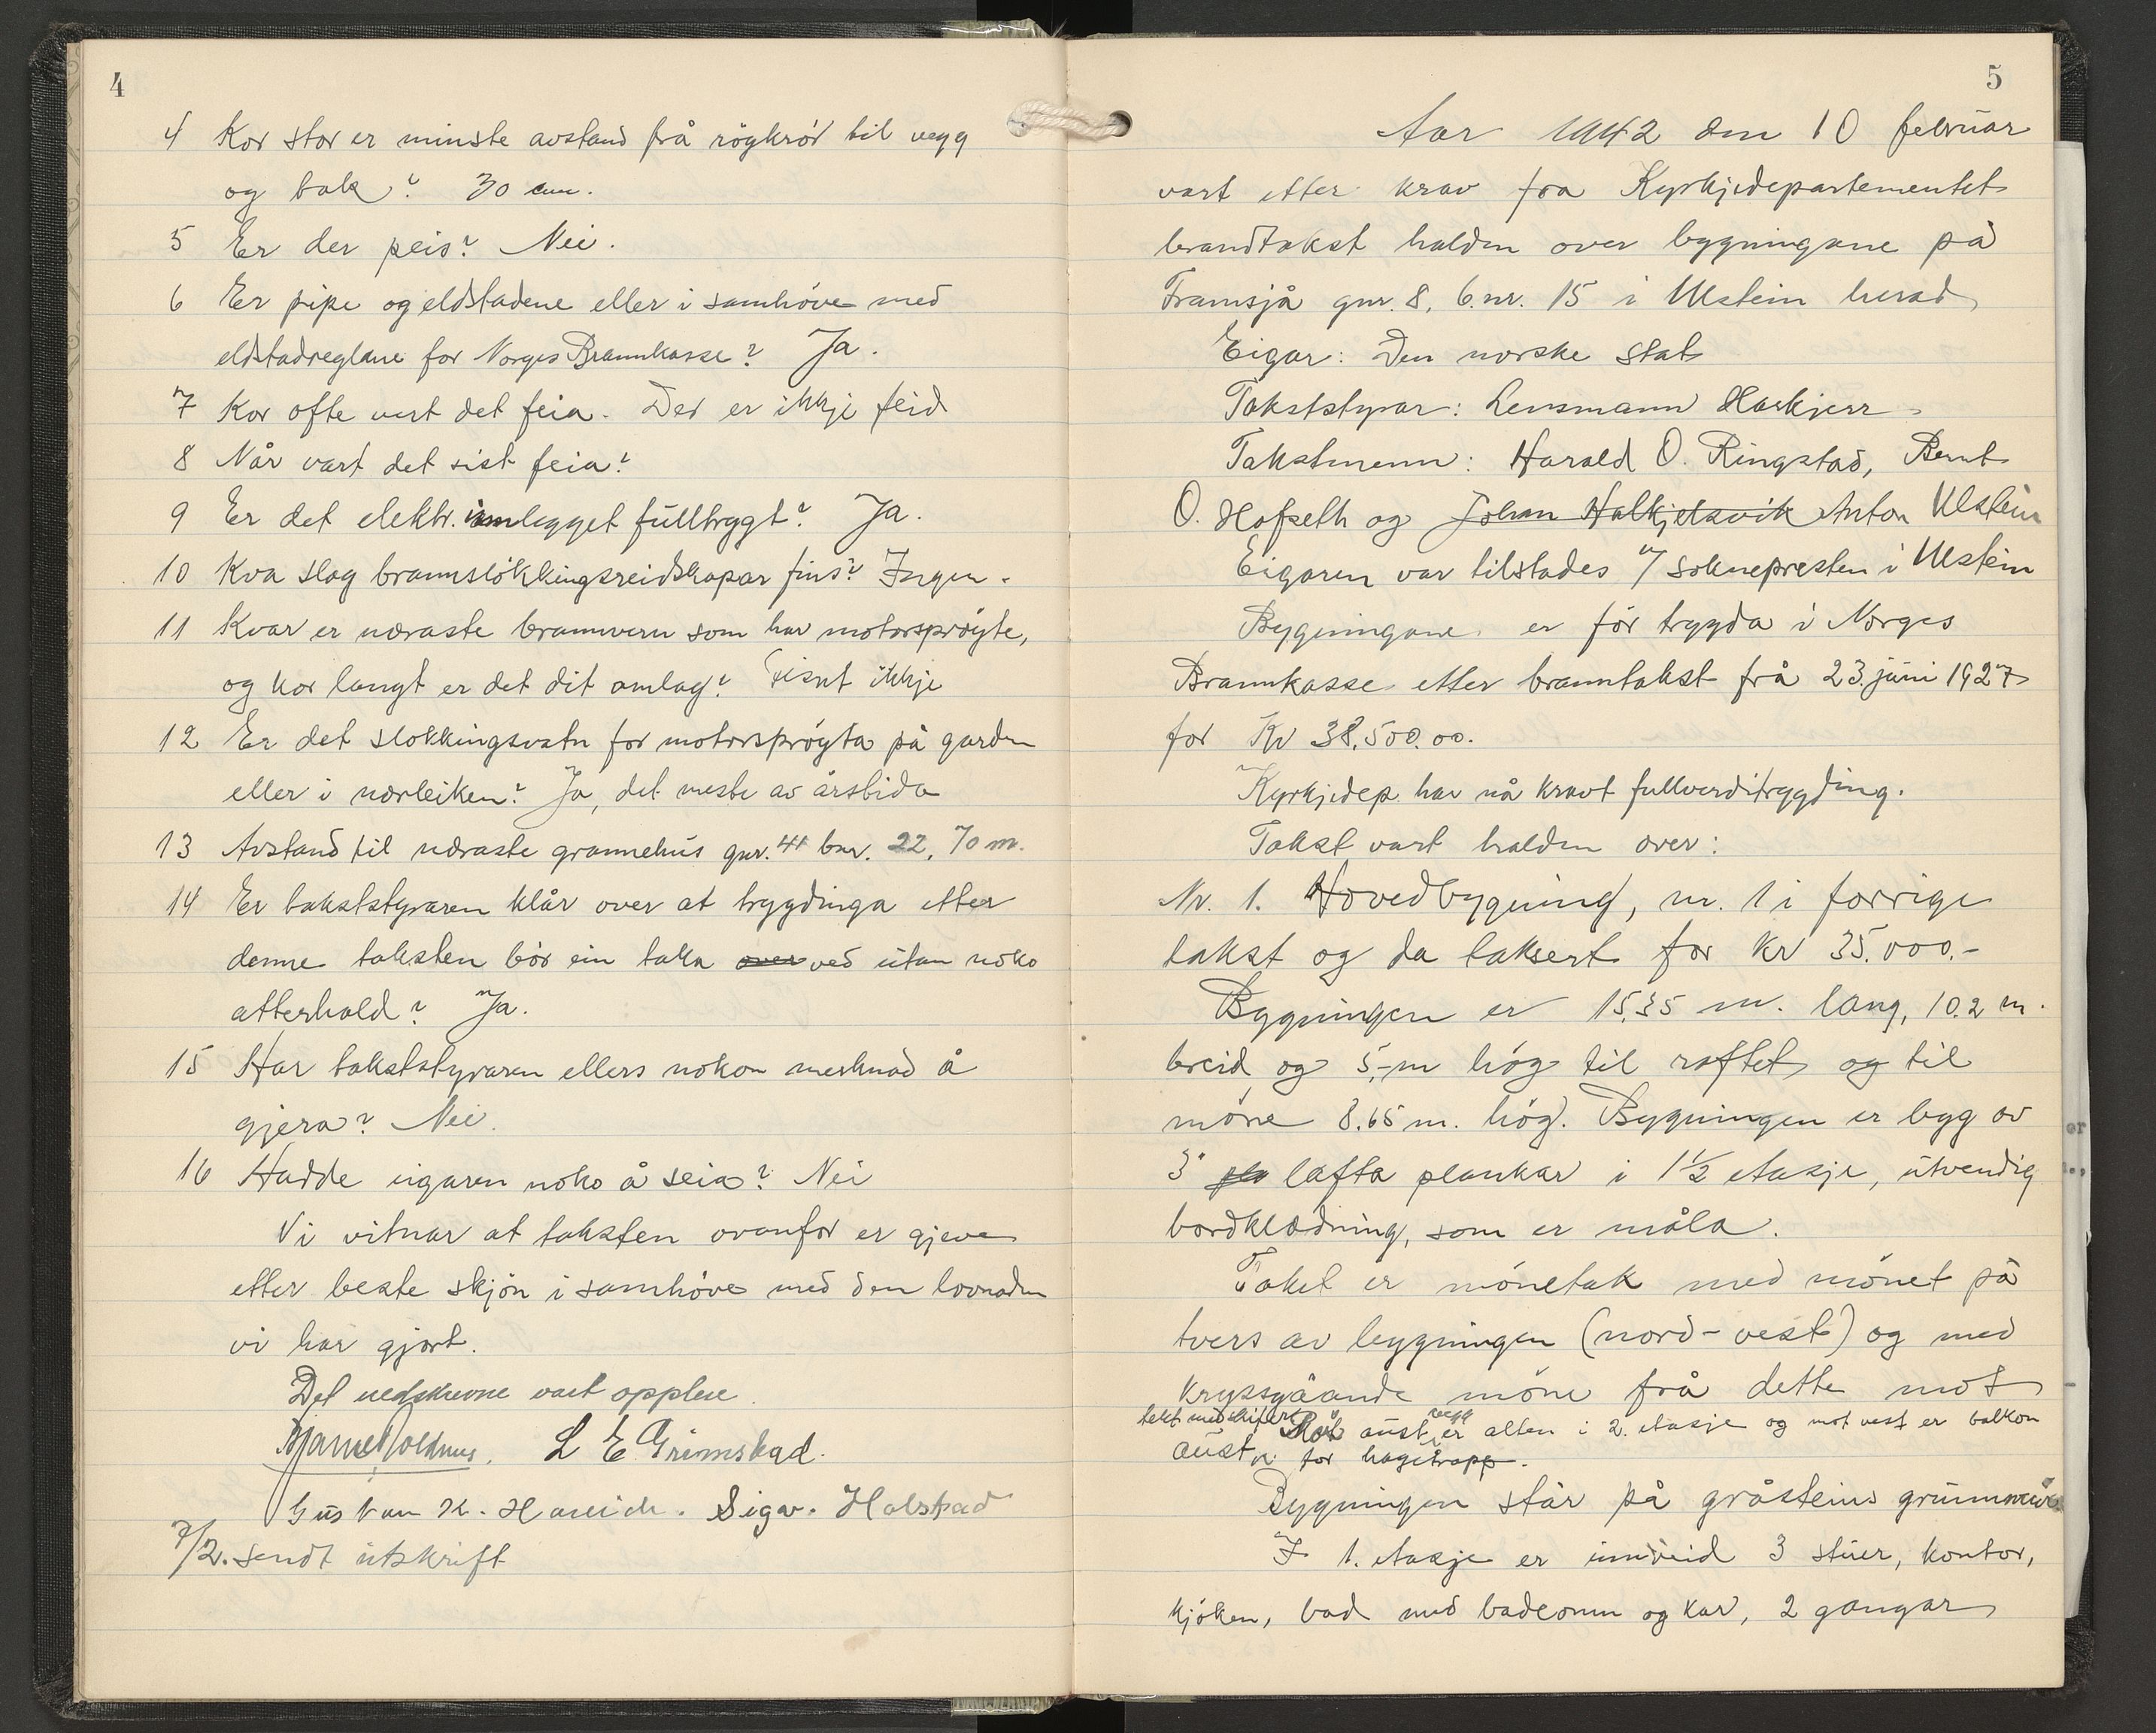 4
4 Kor stor er minste avstand frå röykrör til vegg
og tak? 30 cm.
5 Er der peis? Nei.
6 Er pipe og eldstadene eller i samhöve med
eldstadreglane for Norges Brannkasse? Ja.
7 Kor ofte vert det feia. Det er ikkje feid
8 Når vart det sist feia?
9 Er det elektr. innlegget fulltrygt? Ja.
10 Kva slag brannslökkingsreidskapar fins? Ingen.
11 Kvar er næraste brannvern som har motorspröyte,
og kor langt er det dit omlag? Fisnt ikkje
12 Er det slokkingsvatn for motorspröyta på garden
eller i nærleiken? Ja, det meste av årstida
13 Avstand til næraste grannehus gnr. 41 bnr. 22, 70 m.
14 Er takststyraren klår over at trygdinga etter
denne taksten bör ein taka over ved utan noko
atterhald? Ja.
15 Har takststyraren ellers nokon merknad å
gjera? Nei.
16 Hadde eigaren noko å seia? Nei
Vi vitnar at taksten ovanfor er gjeve
etter beste skjön i samhöve med den lovnaden
vi har gjort.
Det nedskrevne vart opplese
L E Grimstad.
Gustav K. Hareide. Sigv. Halstad
7/2. sendt utskrift
5
Aar 1942 den 10 februar
vart etter krav fra Kyrkjedepartementet
brandtakst halden over bygningane på
Framsjå gnr. 8, b.nr. 15 i Ulstein herad,
Eigar: Den norske stat
Takststyrar: Lensmann Haskjerr.
Takstmenn: Harald O. Ringstad, Bernt
O. Hofseth og Johan Halkjelsvik Anton Ulstein
Eigaren var tilstades v/ soknepresten i Ulstein
Bygningane er för trygda i Norges
Brannkasse etter branntakst frå 23. juni 1927
for Kr 38.500.00.
Kyrkjedep. har nå kravt fullverditrygding.
Takst vart halden over:
Nr. 1. Hovedbygning, nr. 1 i forrige
takst og da taksert for kr 35.000.-
Bygningen er 15.35 m. lang, 10.2 m.
breid og 5,- m hög til raftet og til
möne 8.65 m. hög. Bygningen er bygg av
3" pla lafta plankar i 1 1/2 etasje, utvendig
bordklædning, som er måla.
Taket er mönetak med mönet på
tvers av bygningen (nord-vest) og med
kryssgåande möne frå dette mot
tekt med skifer. Mot aust er alten i 2. etasje og mot vest er balkon
aust for hagetrapp.
Bygningen står på gråsteins grunnmur
I 1. etasje er innreid 3 stuer, kontor,
kjöken, bad med badeomn og kar, 2 gangar